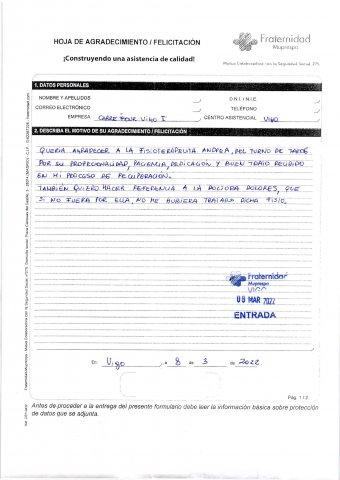 HOJA DE AGRADECIMIENTO / FELICITACIÓN
¡Construyendo una asistencia de calidad!
Fraternidad
Muprespa
Mutua Colaboradora con la Seguridad Social 275
1. DATOS PERSONALES
NOMBRE Y APELLIDOS
D.N.I./N.I.E.
CORREO ELECTRÓNICO
TELÉFONO
EMPRESA CARREFOUR VIGO I
CENTRO ASISTENCIAL VIGO
2. DESCRIBA EL MOTIVO DE SU AGRADECIMIENTO / FELICITACIÓN
QUERIA AGRADECER A LA FISIOTERAPEUTA ANDREA, DEL TURNO DE TARDE
POR SU PROFESIONALIDAD, PACIENCIA, DEDICACIÓN Y BUEN TRATO RECIBIDO
EN MI PROCESO DE RECUPERACIÓN.
TAMBIÉN QUIERO HACER REFERENCIA A LA DOCTORA DOLORES, QUE
SI NO FUERA POR ELLA, NO ME HUBIERA TRATADO DICHA FISIO.
Fraternidad
Muprespa
VIGO
08 MAR 2022
ENTRADA
En Vigo, a 8 de 3 de 2022
Pág. 1 / 2
Antes de proceder a la entrega del presente formulario debe leer la información básica sobre protección
de datos que se adjunta.